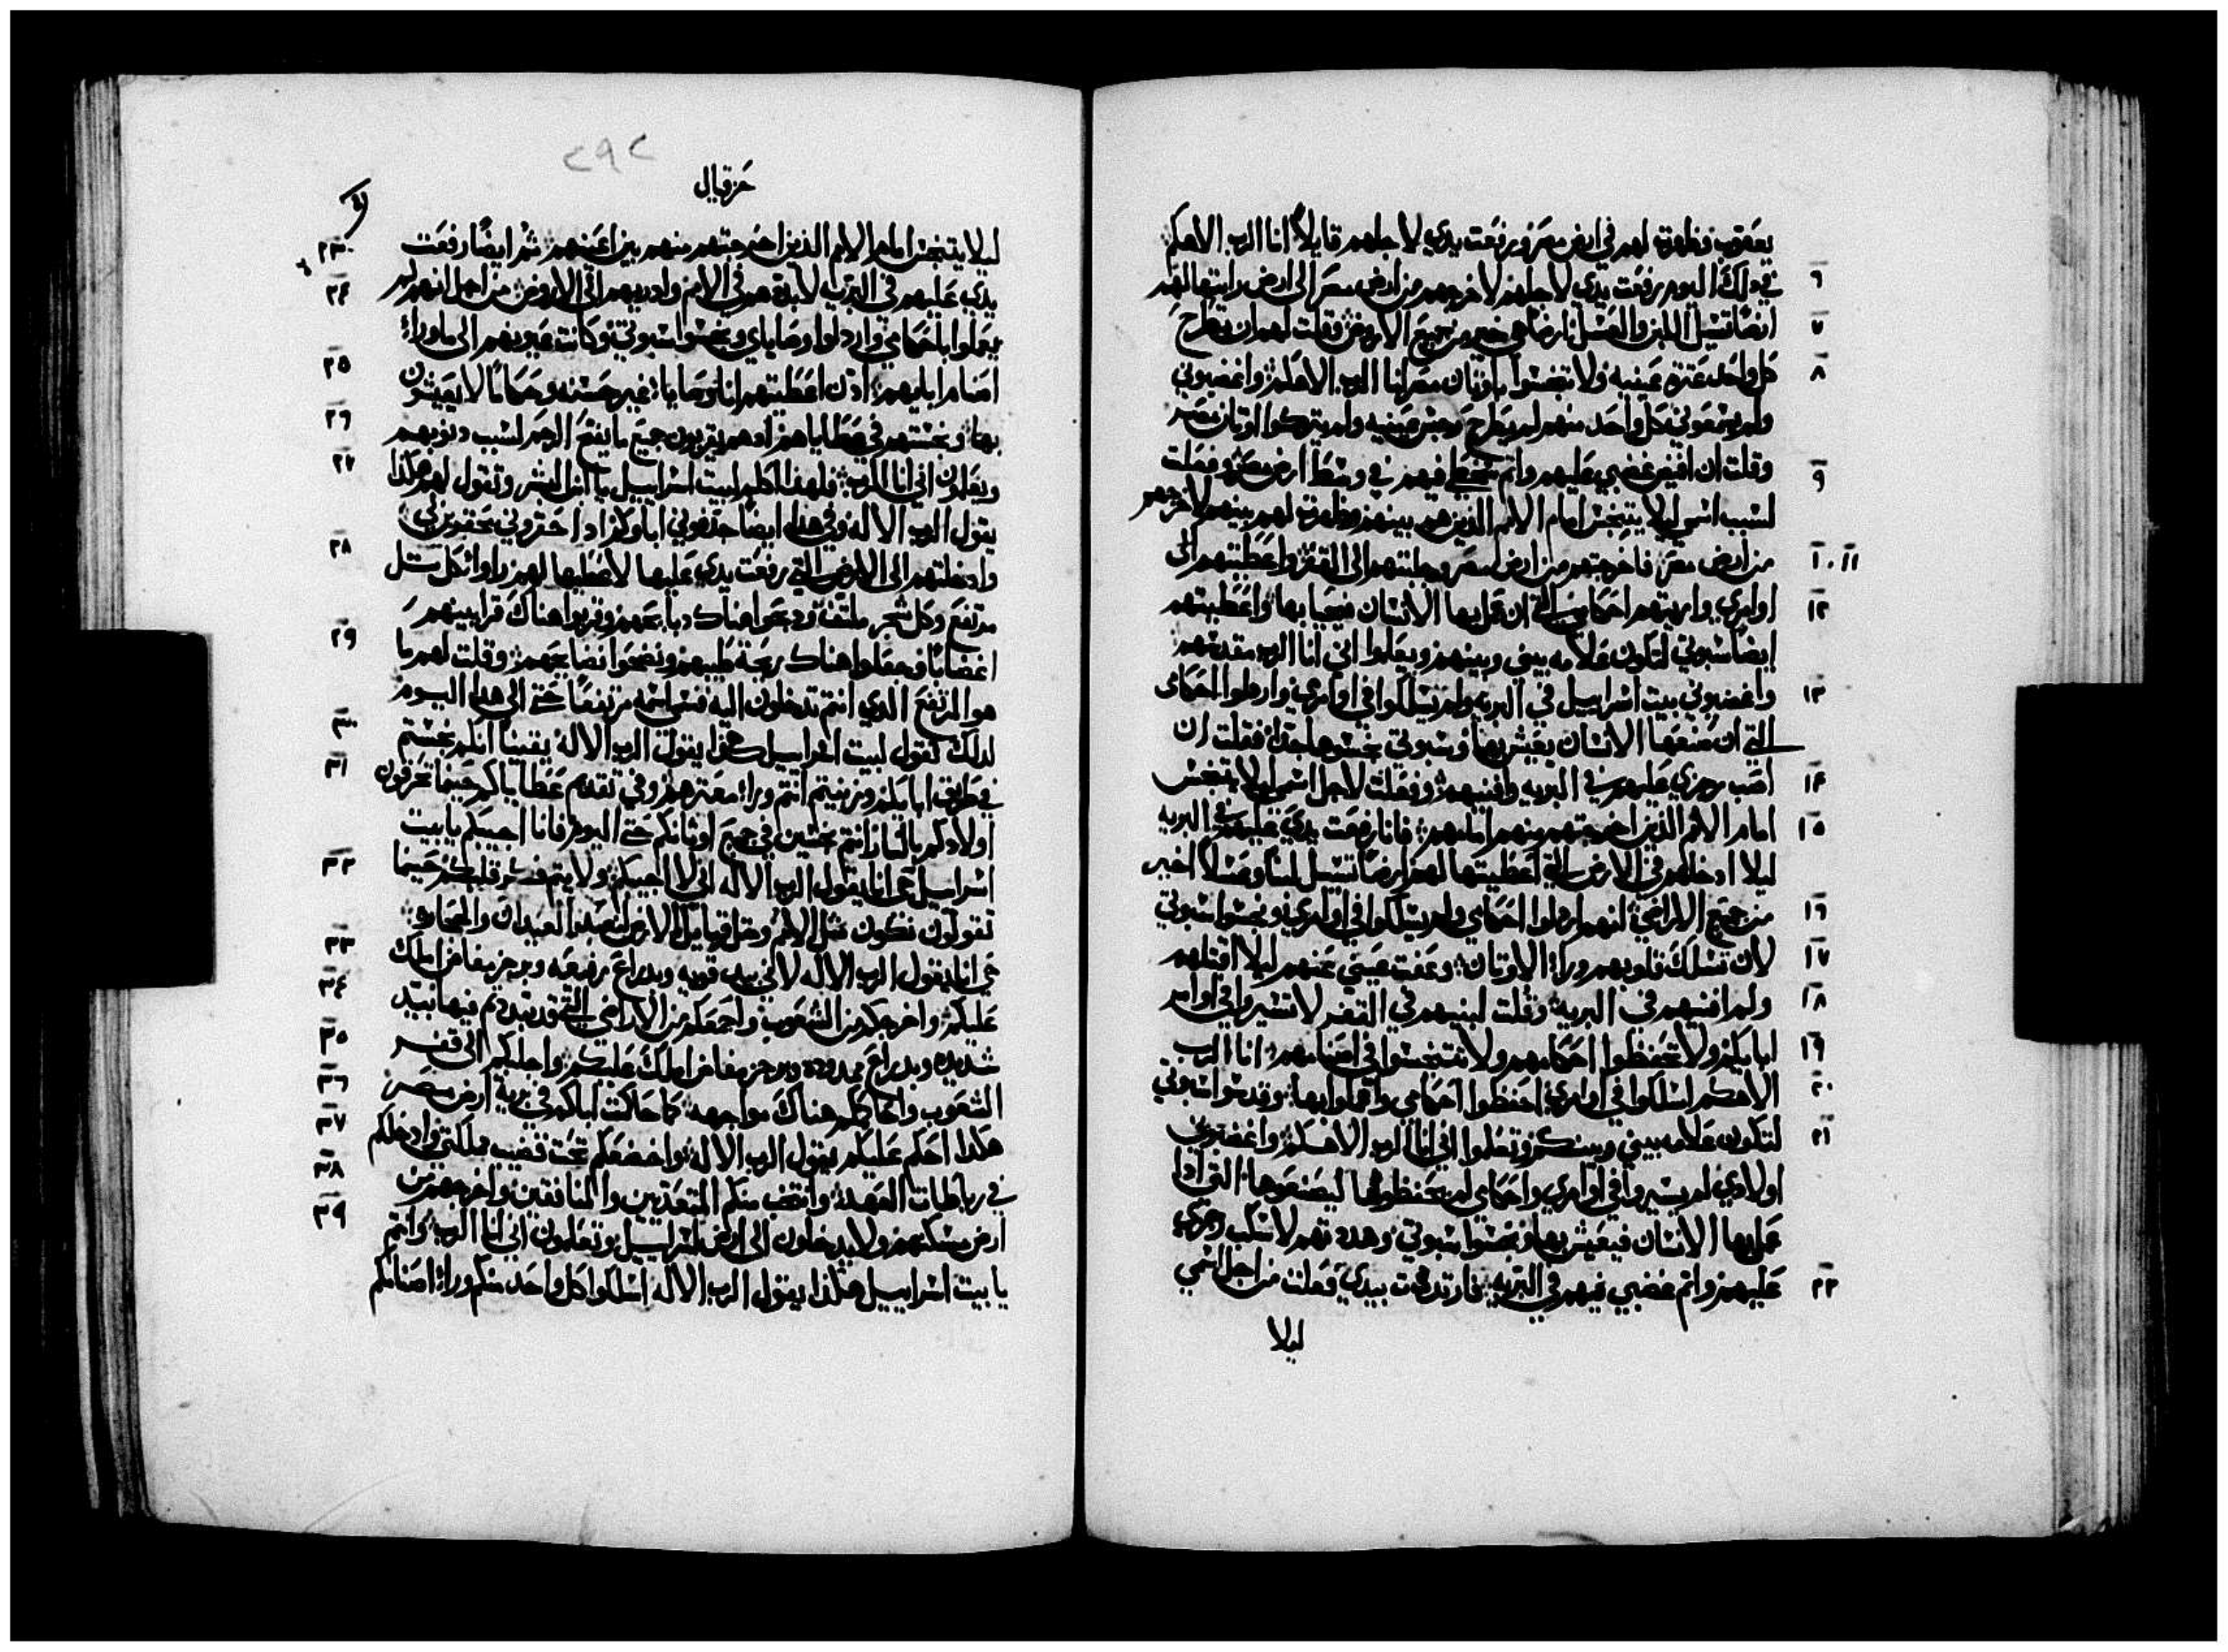 يعقوب وظهرت لهم في ارض مصر ورفعت يدي لاجلهم قايلاً انا الرب الاهكم
٦ في ذلك اليوم رفعت يدي لاجلهم لاخرجهم من ارض مصر الى ارض رايتها لهم
٧ ايضًا تسيل اللبن والعسل ارضًا هي خير من جميع الارضين وقلت لهم ان يطرح
٨ كل واحد عثرة عينيه ولا تتنجسوا باوثان مصر انا الرب الاهكم واغضبوني
ولم يسمعوني كل واحد منهم لم يطرح رجس عينيه ولم يتركوا اوثان مصر
٩ وقلت ان افيض غضبي عليهم واتم سخطي فيهم في وسط ارض مصر وفعلت
لسبب اسمي ليلا يتنجس امام الامم الذين هم بينهم وظهرت لهم بينهم لاخرجهم
١٠ ١١ من ارض مصر فاخرجتهم من ارض مصر وجلبتهم الى القفر واعطيتهم
١٢ اوامري واريتهم احكامي التي ان عمل بها الانسان فيحيا بها واعطيتهم
ايضًا سبوتي لتكون علامه بيني وبينهم ويعلموا اني انا الرب مقدسهم
١٣ واغضبوني بيت اسراييل في البريه ولم يسلكوا في اوامري وارذلوا احكامي
التي ان صنعها الانسان يعيش بها وسبوتي نجسوها جدًا فقلت ان
١٤ اصب رجزي عليهم في البريه وافنيهم وفعلت لاجل اسمي ليلا يتنجس
١٥ امام الامم الذين اخرجتهم منهم امامهم فانا رفعت يدي عليهم في البريه
ليلا ادخلهم في الارض التي اعطيتها لهم ارضًا تسيل لبنًا وعسلاً اخير
١٦ من جميع الاراضي انهم ارذلوا احكامي ولم يسلكوا في اوامري ونجسوا سبوتي
١٧ لان تسلك قلوبهم وراء الاوثان وعفت عيني عنهم ليلا اقتلهم
١٨ ولم افنيهم في البريه وقلت لبنيهم في القفر لا تسيروا في اوامر
١٩ اباكم ولا تحفظوا احكامهم ولا تتنجسوا في اصنامهم انا الرب
٢٠ الاهكم اسلكوا في اوامري احفظوا احكامي واعملوا بها وقدسوا سبوتي
٢١ لتكون علامه بيني وبينكم وتعلموا اني انا الرب الاهكم واغضبوني
اولادي لم يسيروا في اوامري واحكامي لم يحفظوها ليصنعوها التي اذا
عمل بها الانسان فيعيش بها ونجسوا سبوتي وهددتهم لاسكب رجزي
٢٢ عليهم واتم غضبي فيهم في البريه فارتددت بيدي فعلت من اجل اسمي
ليلا
٢٩٢
حزقيال
٢٣ ليلا يتنجس امام الامم الذين اخرجتهم منهم بين اعينهم ثم ايضًا رفعت
٢٤ يدي عليهم في البريه لابددهم في الامم واذريهم في الارضين من اجل انهم لم
يعملوا باحكامي وارذلوا وصاياي ونجسوا سبوتي وكانت عيونهم الى ما وراء
٢٥ اصنام اباييهم اذن اعطيتهم انا وصايا غير حسنه وحكامًا لا يعيشون
٢٦ بها ونجستهم في عطاياهم اذ هم يقربون جميع ما يفتح الرحم لسبب ذنوبهم
٢٧ ويعلمون اني انا الرب فلهذا كلم لبيت اسراييل يا ابن البشر وتقول لهم هكذا
يقول الرب الاله وفي هذا ايضًا جدفوني اباوكم اذا احتقروني محتقرين لي
٢٨ وادخلتهم الى الارض التي رفعت يدي عليها لاعطيها لهم راوا كل تل
مرتفع وكل شجر ملتف وذبحوا هناك ذبايحهم وقربوا هناك قرابينهم
٢٩ اغضابًا وجعلوا هناك ريحة طيبهم ونضحوا نضايحهم وقلت لهم ما
هو المرتفع الذي انتم تدخلون اليه فسمي اسمه مرتفعًا حتى الى هذا اليوم
٣٠ لذلك تقول لبيت اسراييل هكذا يقول الرب الاله يقينًا انكم نجستم
٣١ في طريق اباكم وتزنيتم انتم وراء معثرهم وفي تقدم عطاياكم حينما تحرقون
اولادكم بالنار انتم نجسين في جميع اوثانكم حتى اليوم فانا اجيبكم يا بيت
٣٢ اسراييل حي انا يقول الرب الاله اني لا اجيبكم ولا يتم فكر قلبكم حينما
تقولون نكون مثل الامم ومثل قبايل الارض لنعبد العيدان والحجاره
٣٣ حي انا يقول الرب الاله لاني بيد قويه وبذراع رفيعه وبرجز مفاض املك
٣٤ عليكم واخرجكم من الشعوب واجمعكم من الاراضي التي قد تبددتم فيها بيد
٣٥ شديده وبذراع ممدوده وبرجز مفاض املك عليكم واجلبكم الى قفر
٣٦ الشعوب واحاكمكم هناك مواجهه كما حاكمت اباكم في برية ارض مصر
٣٧ هكذا احكم عليكم يقول الرب الاله واخضعكم تحت قضيب مملكتي وادخلكم
٣٨ في رباطات العهد وانتخب منكم المتعديين والمنافقين واخرجهم من
٣٩ ارض مسكنهم ولا يدخلون الى ارض اسراييل وتعلمون اني انا الرب وانتم
يا بيت اسراييل هكذا يقول الرب الاله اسلكوا كل واحد منكم وراء اصنامكم